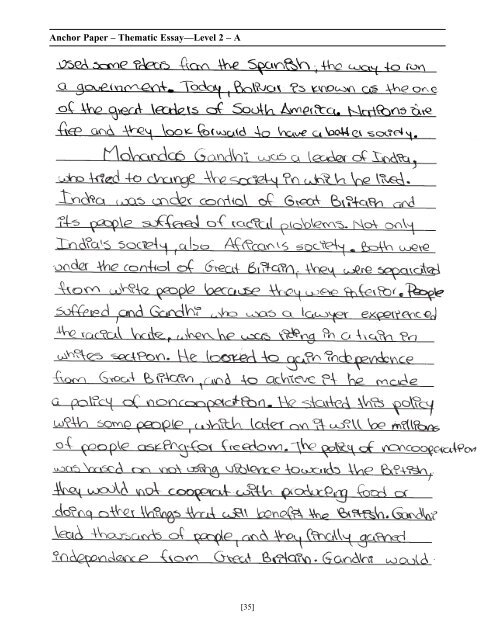 Anchor Paper – Thematic Essay—Level 2 – A
used some ideas from the Spanish, the way to run
a government. Today, Bolivar is known as the one
of the great leaders of South America. Nations are
free and they look forward to have a better society.
Mohandas Gandhi was a leader of India,
who tried to change the society in which he lived.
India was under control of Great Britain and
its people suffered of racial problems. Not only
India's society, also African's society. Both were
under the control of Great Britain, they were separated
from white people because they were inferior. People
suffered, and Gandhi who was a lawyer experienced
the racial hate, when he was riding in a train in
whites section. He looked to gain independence
from Great Britain, and to achieve it he made
a policy of noncooperation. He started this policy
with some people, which later on it will be millions
of people asking for freedom. The policy of noncooperation
was based on not using violence towards the British,
they would not cooperat with producing food or
doing other things that will benefit the British. Gandhi
lead thousands of people, and they finally gained
independence from Great Britain. Gandhi would
[35]